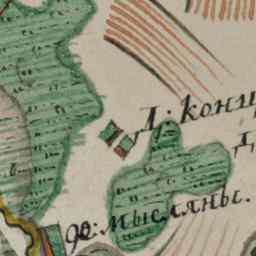 Д: конц
Д
90: мысляны.